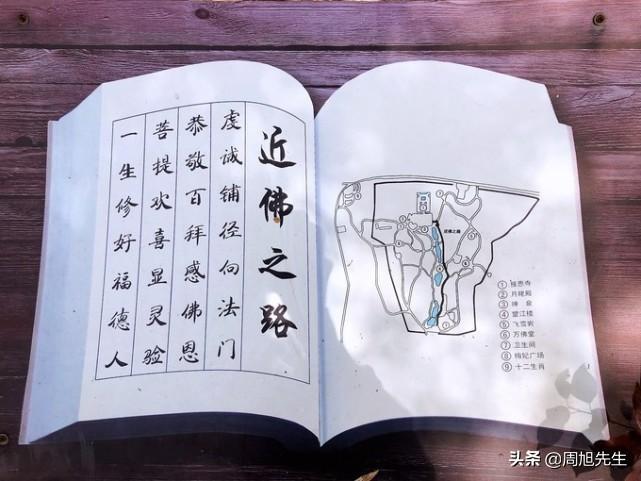 近佛之路
虔诚铺径向法门
恭敬百拜感佛恩
菩提欢喜显灵验
一生修好福德人
近佛之路
① 恩寺
②
③
④ 望江楼
⑤ 飞雪岩
⑥ 万佛堂
⑦ 卫生间
⑧ 广场
⑨ 十二生肖
头条 @周旭先生